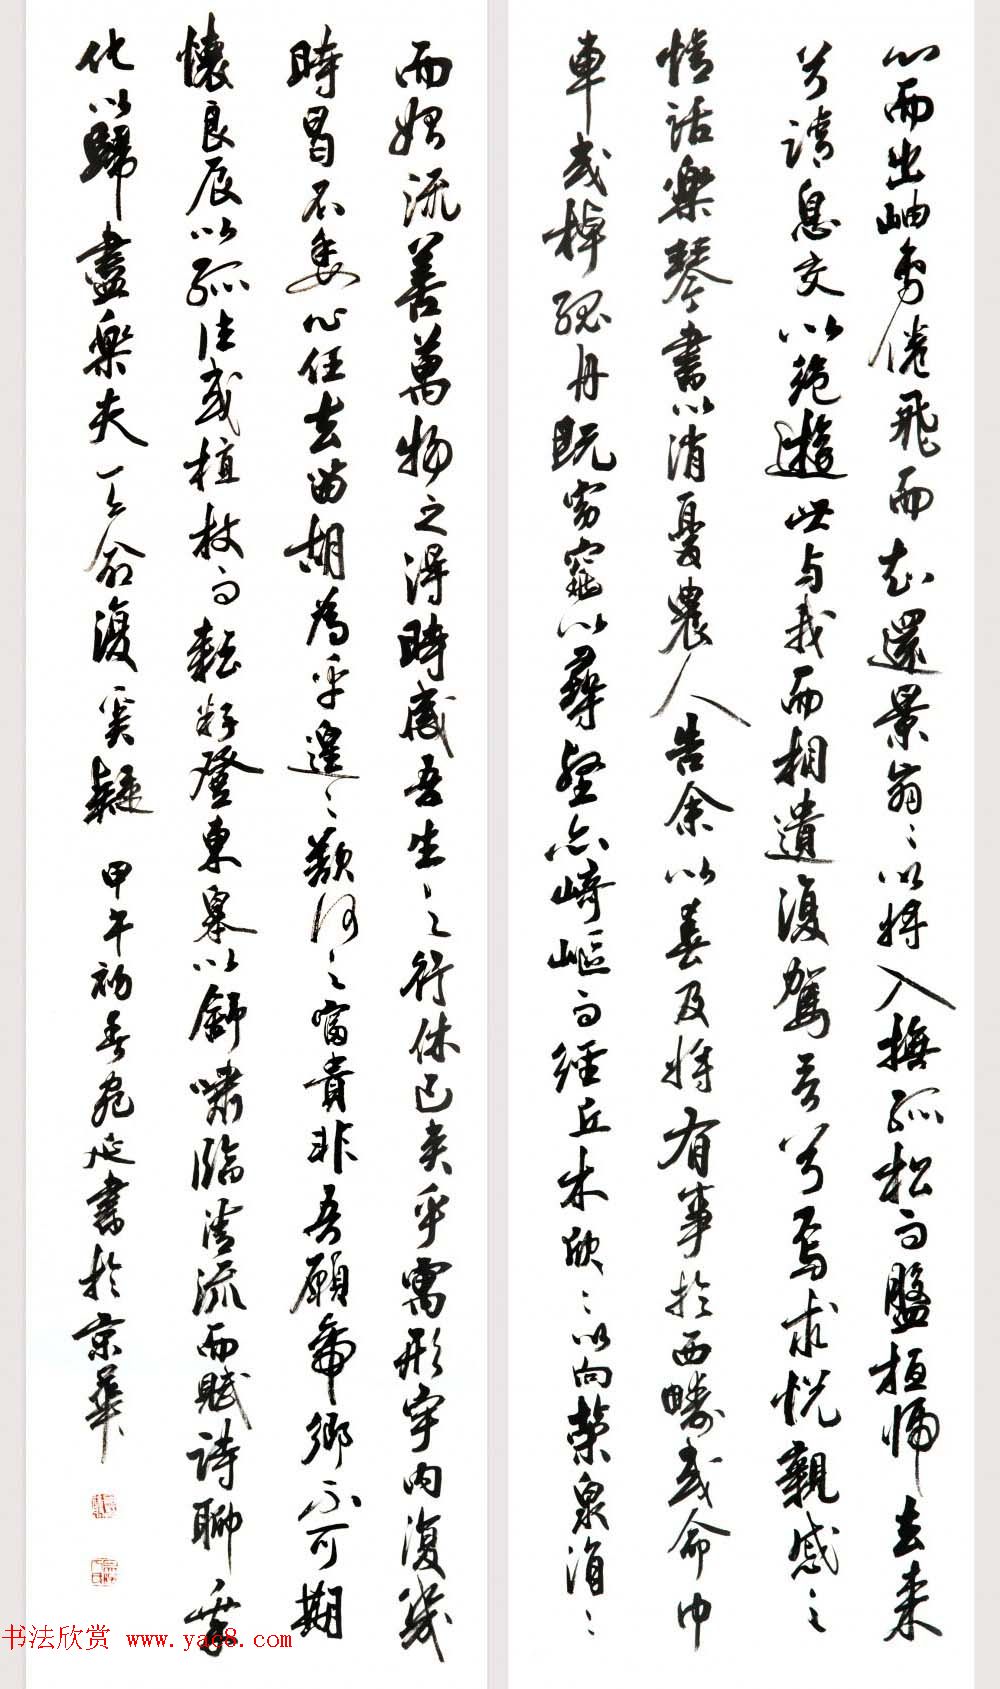 心而出岫鳥倦飛而知還景翳〻以将入撫孤松而盤桓歸去来
兮請息交以絶遊世与我而相遺復駕言兮焉求悦親戚之
情話樂琴書以消憂農人告余以春及将有事於西疇或命巾
車或棹孤舟既窈窕以尋壑亦崎嶇而經丘木欣〻以向榮泉涓〻
而始流善萬物之得時感吾生之行休已矣乎寓形宇内復幾
時曷不委心任去留胡為乎遑〻欲何之富貴非吾願帝鄉不可期
懷良辰以孤往或植杖而耘耔登東皋以舒嘯臨清流而賦詩聊乘
化以歸盡樂夫天命復奚疑 甲午初春延書於京華
书法欣赏 www.yac8.com